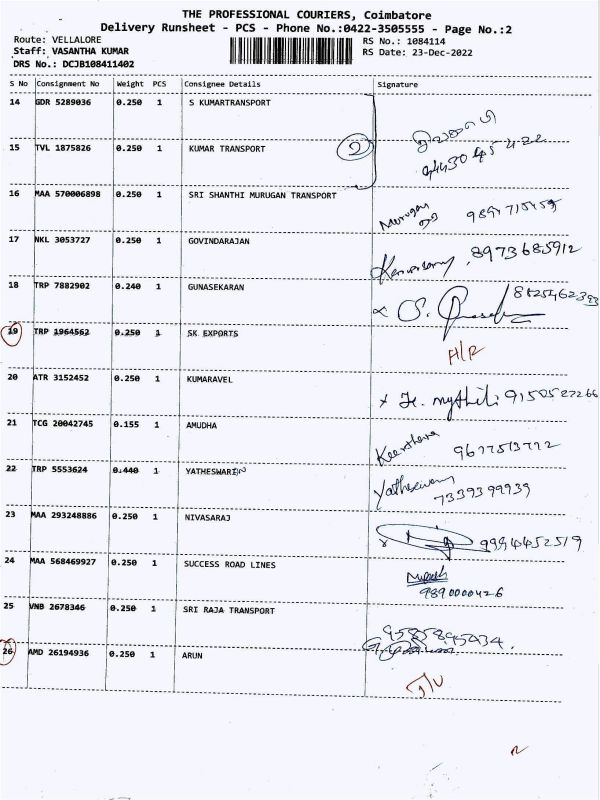 THE PROFESSIONAL COURIERS, Coimbatore
Delivery Runsheet - PCS - Phone No.:0422-3505555 - Page No.:2
Route: VELLALORE
Staff: VASANTHA KUMAR
DRS No.: DCJB108411402
RS No.: 1084114
RS Date: 23-Dec-2022
S No Consignment No Weight PCS Consignee Details Signature
14 GDR 5289036 0.250 1 S KUMARTRANSPORT
15 TVL 1875826 0.250 1 KUMAR TRANSPORT 2
16 MAA 570006898 0.250 1 SRI SHANTHI MURUGAN TRANSPORT Murugan
17 NKL 3053727 0.250 1 GOVINDARAJAN 8973685912
18 TRP 7882902 0.240 1 GUNASEKARAN
19 TRP 1964562 0.250 1 SK EXPORTS
20 ATR 3152452 0.250 1 KUMARAVEL Mythili 9150527266
21 TCG 20042745 0.155 1 AMUDHA 9677513772
22 TRP 5553624 0.440 1 YATHESWAREN 7339399939
23 MAA 293248886 0.250 1 NIVASARAJ 9994452519
24 MAA 568469927 0.250 1 SUCCESS ROAD LINES
25 VNB 2678346 0.250 1 SRI RAJA TRANSPORT
26 AMD 26194936 0.250 1 ARUN